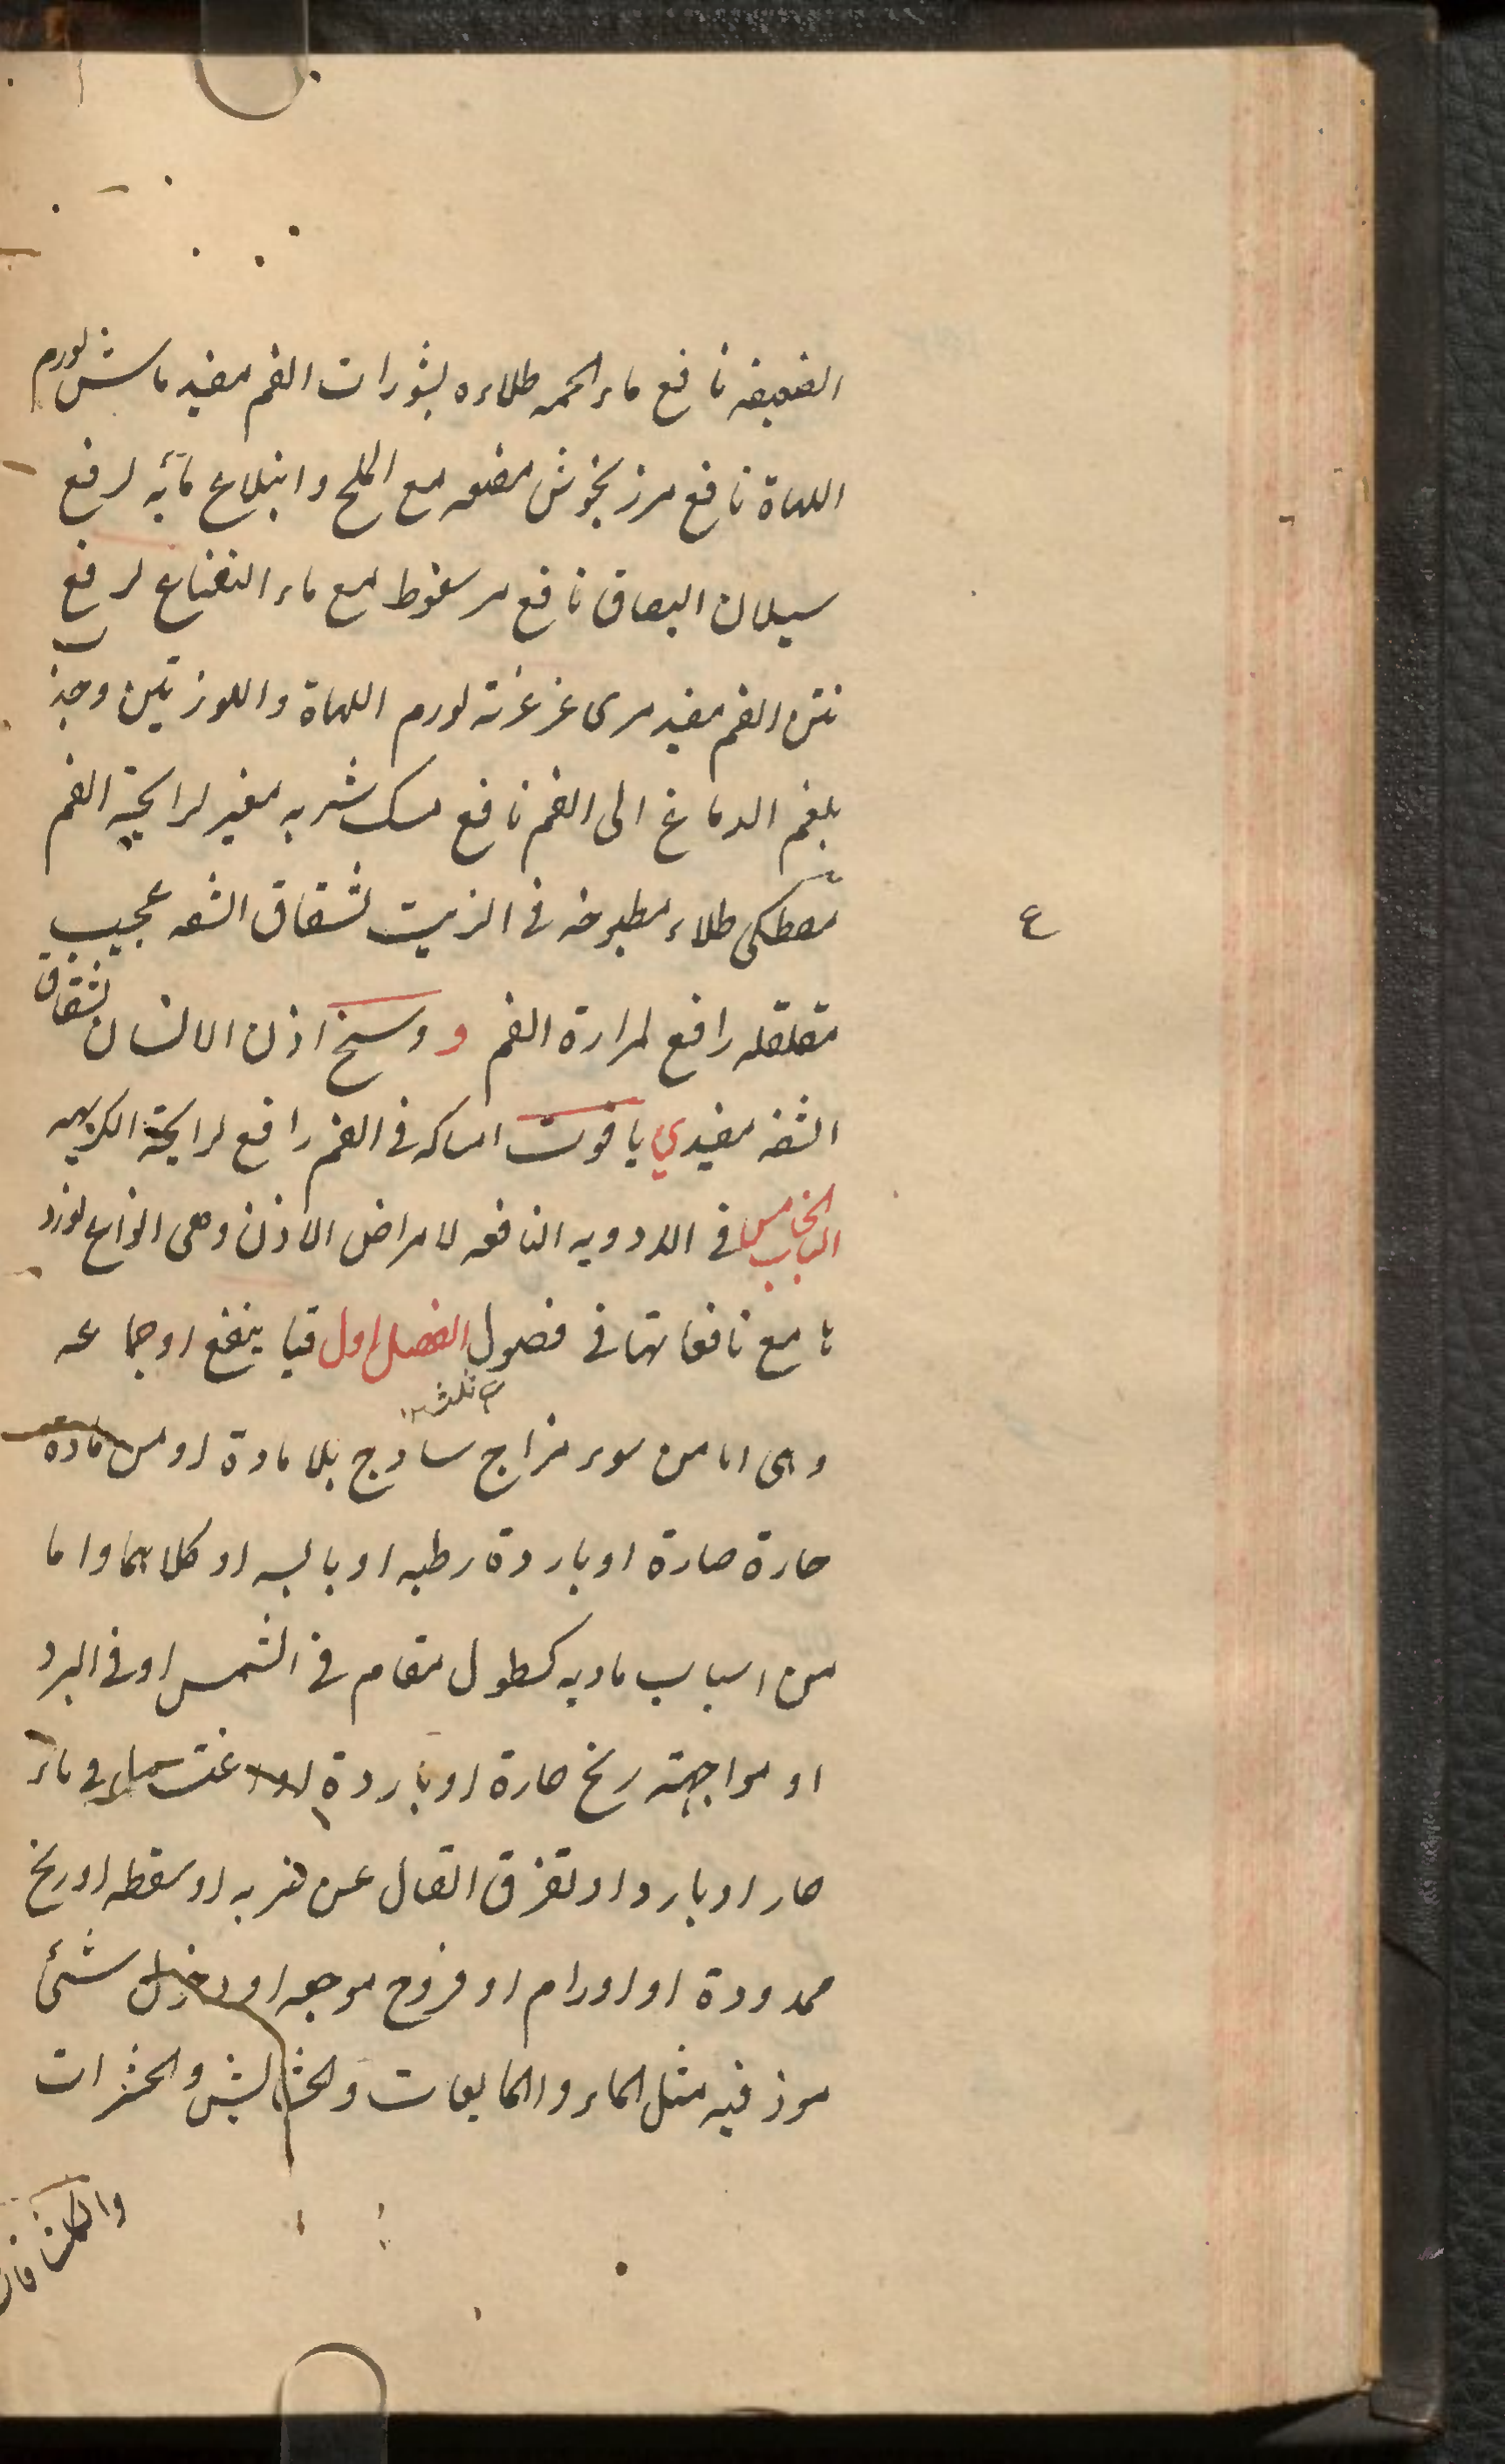 الضعيفه نافع ماء الحمه طلاءه لبثورات الفم مفيد ماش لورم
اللهاة نافع مرزنجوش مضغه مع الملح وابتلاع مآئه لرفع
سيلان البصاق نافع مر سعوط مع ماء النعناع لرفع
نتن الفم مفيد مرى غرغرته لورم اللهاة واللوزتين وجذب
بلغم الدماغ الى الفم نافع مسك شربه مغير لرايحة الفم
مصطكى طلاء مطبوخه فى الزيت لشقاق الشفه عجيب
ع
مقلقله رافع لمرارة الفم و وسخ اذن الانسان لشقاق
الشفه مفيد ي ياقوت امساكه فى الفم رافع لرايحة الكريهه
الباب الخامس فى الادويه النافعه لامراض الاذن وهى انواع نورد
ها مع نافعاتها فى فصول الفصل اول فيما ينفع اوجاعه
وهى اما من سوء مزاج سادج بلا مادة او من مادة
حارة حارة او باردة رطبه او يابسه او كلاهما واما
من اسباب ماديه كطول مقام فى الشمس او فى البرد
او مواجهة ريح حارة او باردة او غتسال فى ماء
حار او بارد او لتفرق اتصال عن ضربه او سقطه او ريح
ممدودة او اورام او قروح موجعه او دخول شئ
موذ فيه مثل الماء والمايعات والحشايش والحشرات